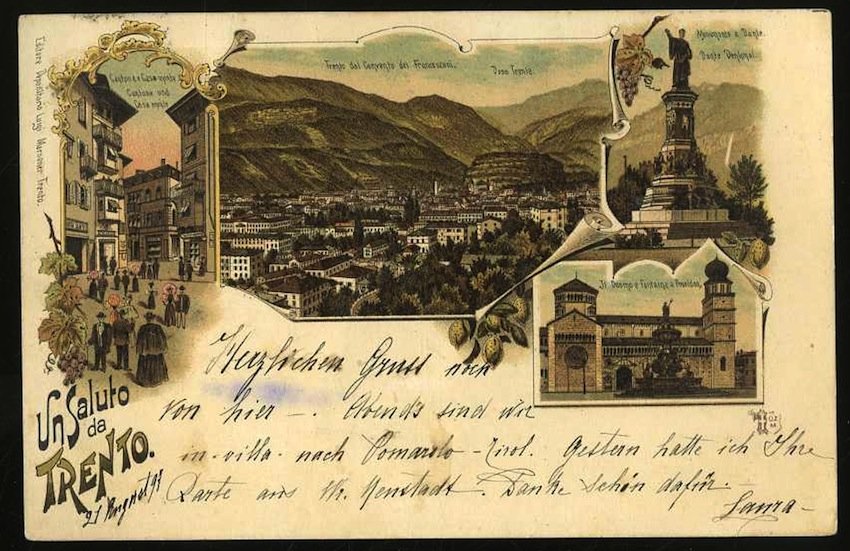 Editore Ippolitario Luigi Marsoner Trento.
Cantone e Casa
Cantone und
Trento dal Convento dei Francescani.
Doss Trento.
Monumento a Dante.
Dante Denkmal.
Il Duomo e Fontana
Un Saluto
da
TRENTO.
21 August
Herzlichen Gruss noch
von hier -. Abends sind wir
in villa nach Pomarolo - Tirol. Gestern hatte ich Ihre
Karte aus Wr. Neustadt. Danke schön dafür -
Laura -